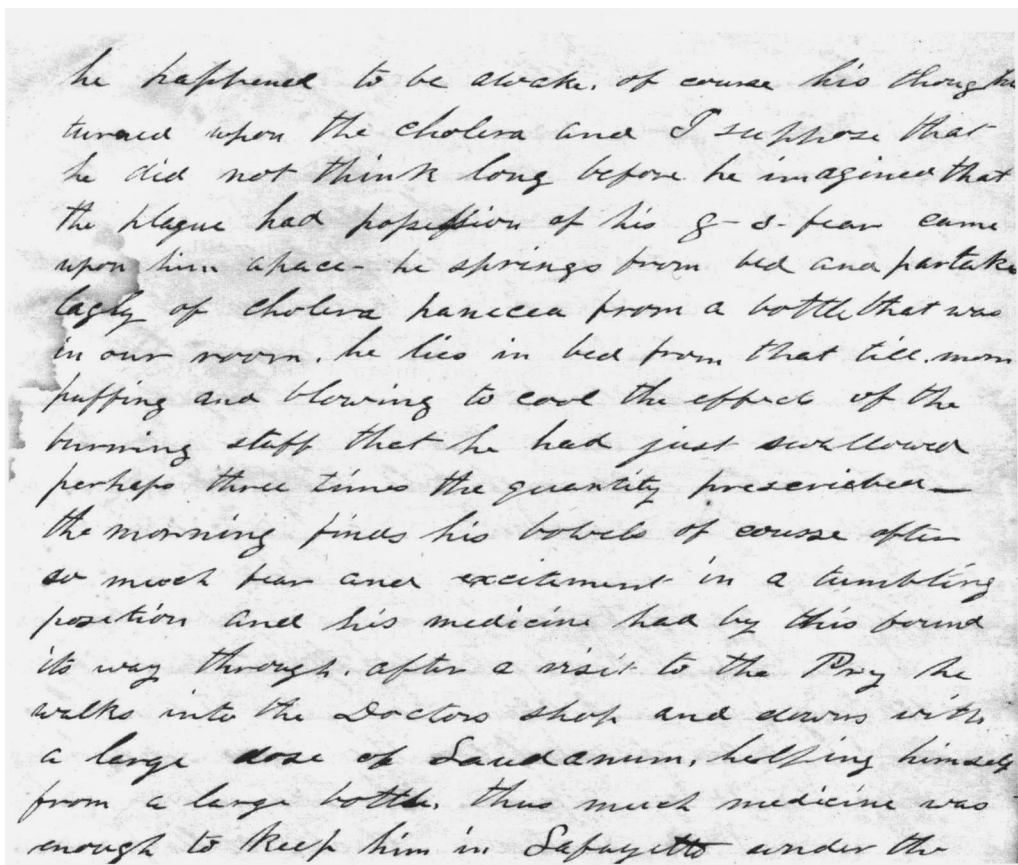 he happened to be awake. of course his though
turned upon the cholera and I suppose that
he did not think long before he imagined that
the plague had possession of his g-s- fear came
upon him apace - he springs from bed and partake
of cholera panecea from a bottle that was
in our room. he lies in bed from that till morn
puffing and blowing to cool the effects of the
burning stuff that he had just swallowed
perhaps three times the quantity prescriebed—
the morning finds his bowels of course after
so much fear and excitement in a tumbling
position and his medicine had by this found
its way through. after a visit to the he
walks into the Doctors shop and downs with
a large dose of Laudanum, helping himself
from a large bottle. thus much medicine was
enough to keep him in Lafayette under the